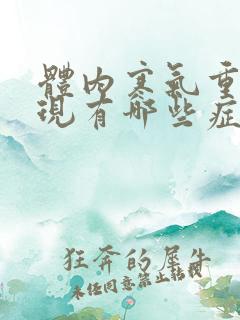 體內寒氣重
現有哪些症
狂奔的犀牛
未经同意禁止转载